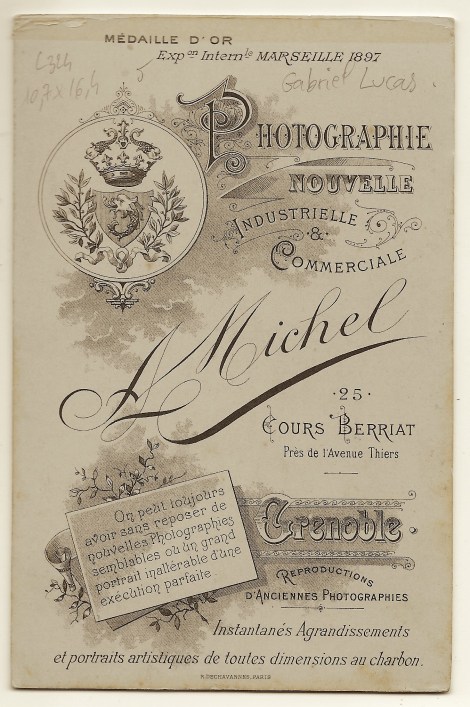 MÉDAILLE D'OR
Expon Internle MARSEILLE 1897
C324
10,7 x 16,4
Gabriel Lucas.
PHOTOGRAPHIE
NOUVELLE
INDUSTRIELLE
·&·
COMMERCIALE
A Michel
·25·
COURS BERRIAT
Près de l'Avenue Thiers
On peut toujours
avoir sans reposer de
nouvelles Photographies
semblables ou un grand
portrait inaltérable d'une
exécution parfaite.
Grenoble.
REPRODUCTIONS
D'ANCIENNES PHOTOGRAPHIES
Instantanés Agrandissements
et portraits artistiques de toutes dimensions au charbon.
R. DECHAVANNES, PARIS